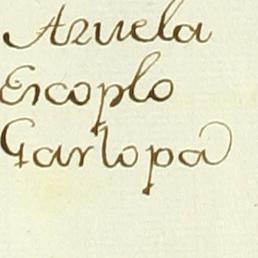 Azuela
Escoplo
Garlopa